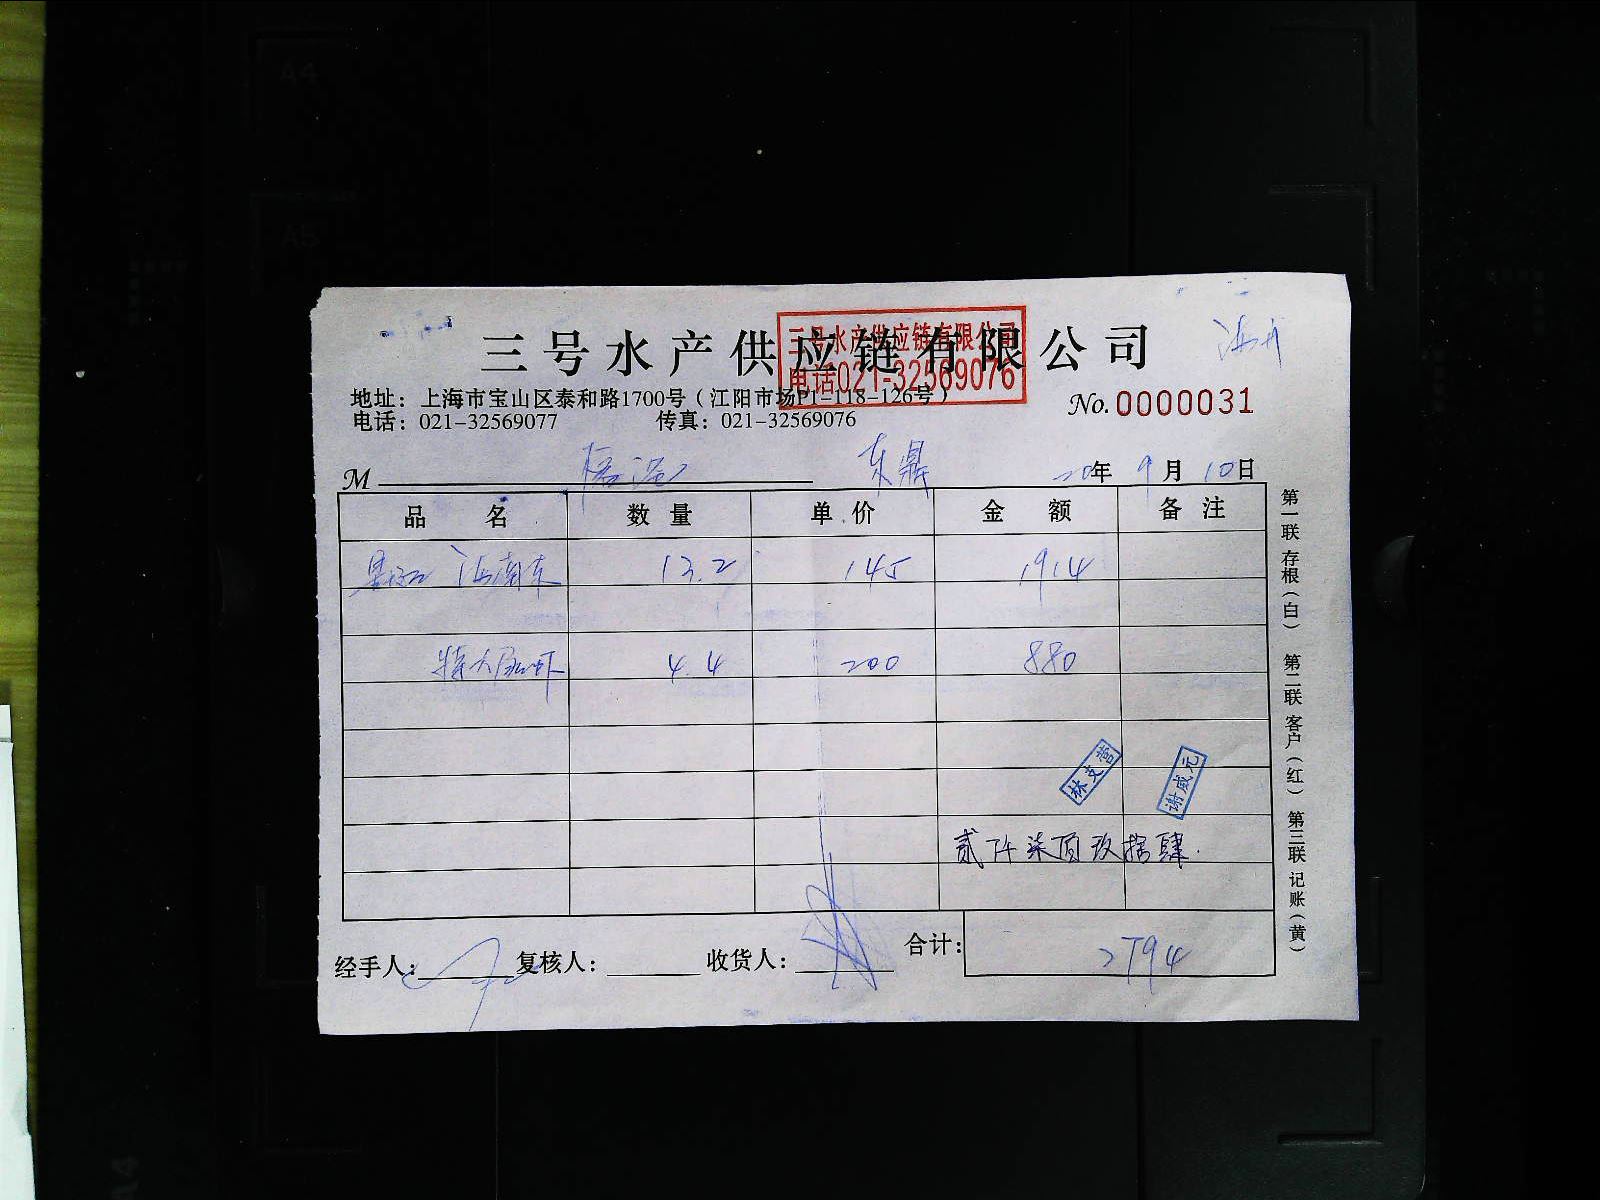 三号水产供应链有限公司
三号水产供应链有限公司
电话021-32569076
地址：上海市宝山区泰和路1700号（江阳市场P1-118-126号）
No.0000031
电话：021-32569077 传真：021-32569076
M 东鼎 20年 9月 10日
品名 数量 单价 金额 备注
海南东 13.2 145 1914
特大 虾 4.4 200 880
林支营 谢威元
贰仟柒佰玖拾肆
经手人： 复核人： 收货人： 合计： 2794
第一联 存根（白） 第二联 客户（红） 第三联 记账（黄）
A4
A5
A4